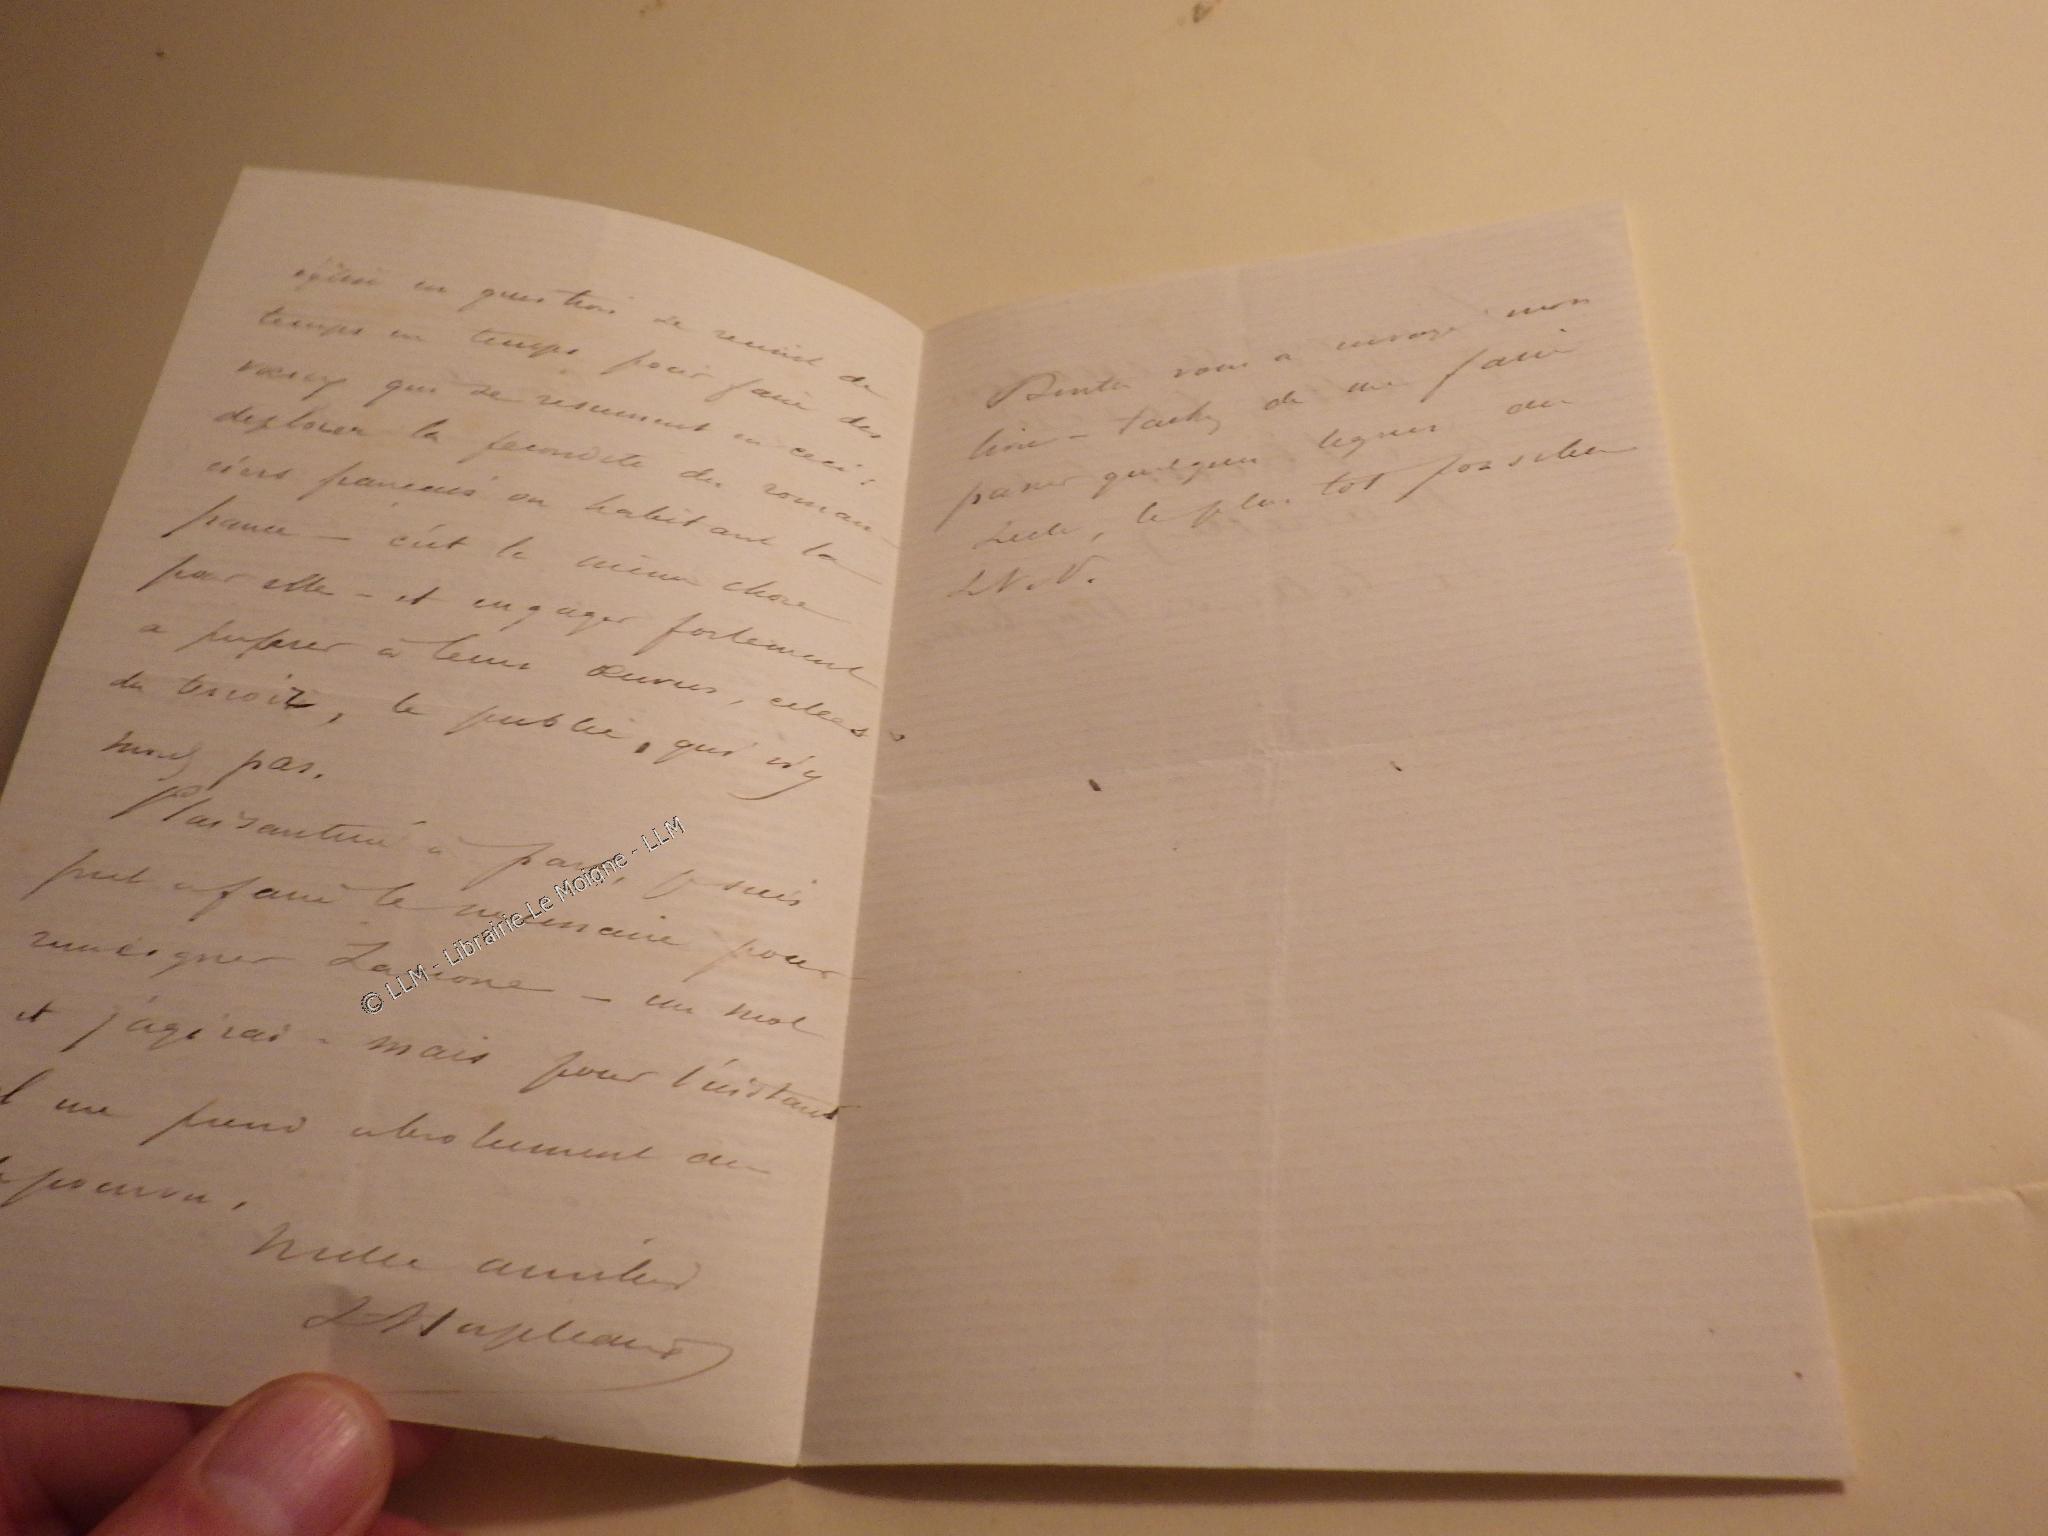 église en question se réunit de
temps en temps pour faire des
voeux qui se resument en ceci :
deplorer la fecondité des roman-
ciers francais ou habitant la
france — c'est la même chose
pour elle — et engager fortement
a preferer à leurs œuvres, celles
du terroir, le public, qui n'y
mord pas.
Plaisanterie à part, je suis
pret a faire le necessaire pour
renseigner — un mot
et j'agirai — mais pour l'instant
me prend absolument au
Mille amitiés
vous a envoyé mon
de me faire
passer quelques lignes du
le plus tot possible
L N. V.
© LLM - Librairie Le Moigne - LLM